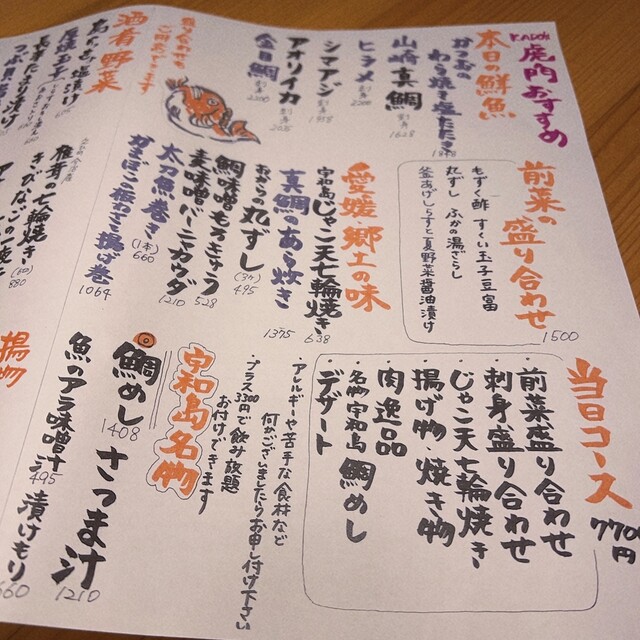 KADO's 虎丙おすすめ
本日の鮮魚
かつおの
わら焼き塩たたき
1848
山崎真鯛 刺身
1628
ヒラメ 刺身
2200
シマアジ 刺身
1958
アオリイカ 刺身
金目鯛 刺身
2200
盛り合わせも
ご用意できます
前菜の盛り合わせ
もずく酢 すくい玉子豆富
丸ずし ふかの湯ざらし
釜あげしらすと夏野菜醤油漬け
1500
愛媛郷土の味
宇和島じゃこ天七輪焼き
638
真鯛のあら炊き
1375
おぐらの丸ずし
(3ケ)
495
鯛味噌もろきゅう
528
麦味噌バーニャカウダ
1210
太刀魚巻き
(1本)
660
かまぼこの板わさと揚げ巻
1064
当日コース
7700円
・前菜盛り合わせ
・刺身盛り合わせ
・じゃこ天七輪焼き
・揚げ物・焼き物
・肉逸品
・名物宇和島鯛めし
・デザート
・アレルギーや苦手な食材など
何かございましたらお申し付け下さい
・プラス3300円で飲み放題
お付けできます
宇和島名物
鯛めし
1408
さつま汁
1210
魚のアラ味噌汁
495
漬けもり
660
酒肴 野菜
雁肴の七輪焼き
きびなごの一夜
880
揚物